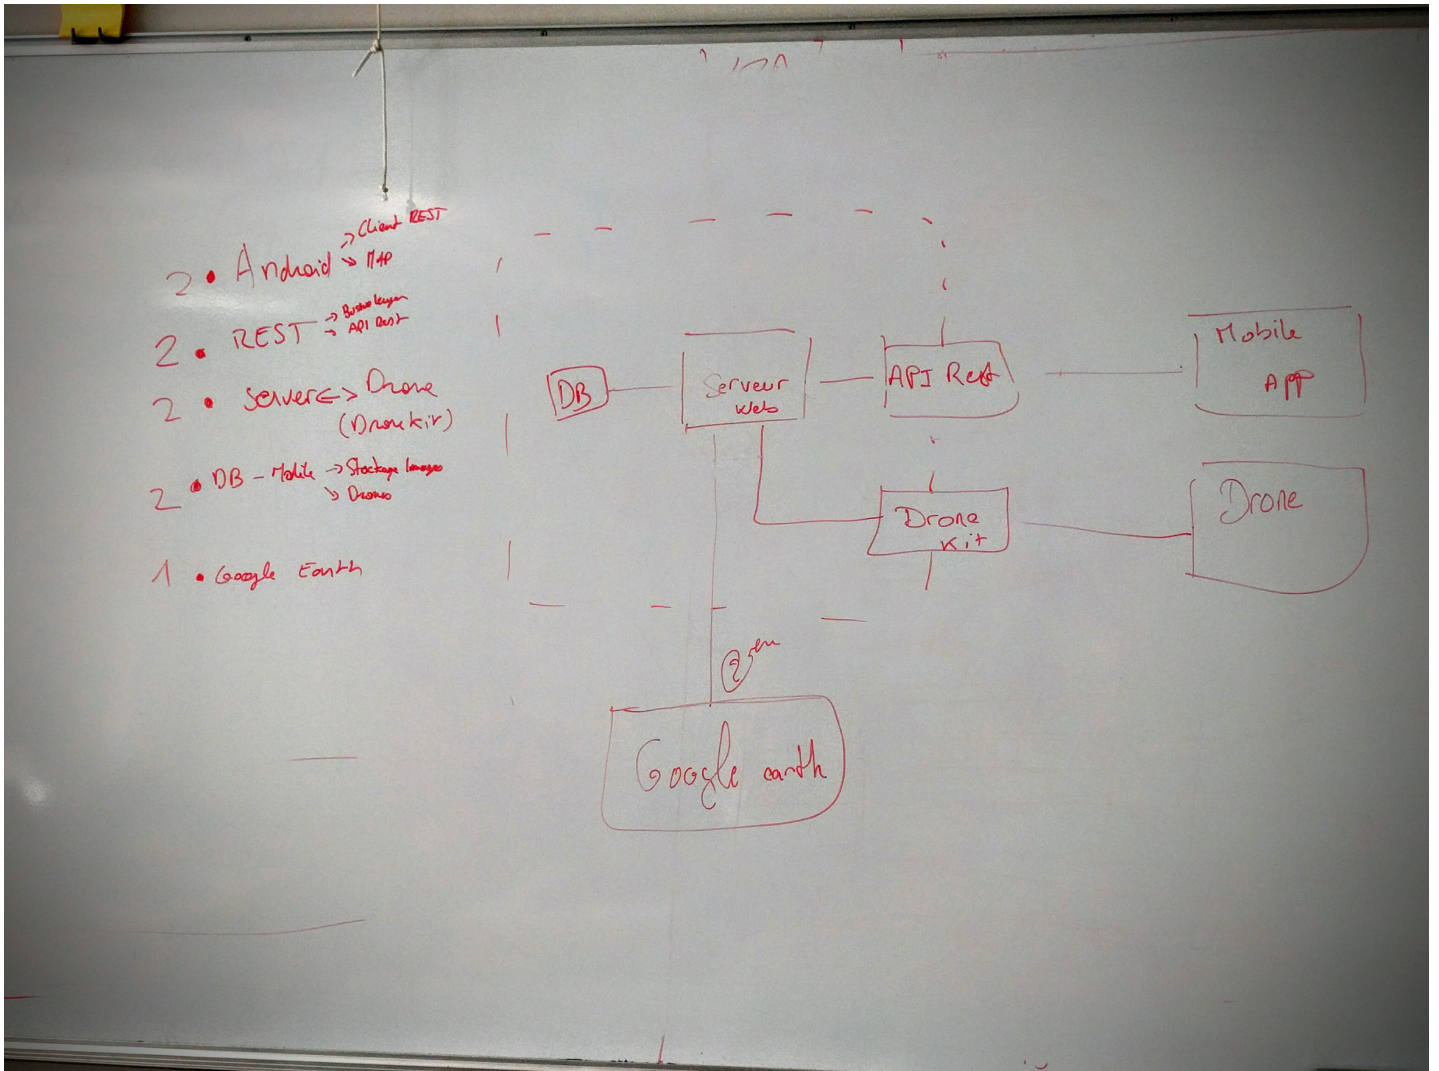 2 • Android → Client REST
→ MAP
2 • REST →
→ API Rest
2 • Server <-> Drone
(Drone kit)
2 • DB - Mobile → Stockage Images
→ Drones
1 • Google Earth
DB
Serveur
Web
API Rest
Mobile
APP
Drone
Kit
Drone
Google earth